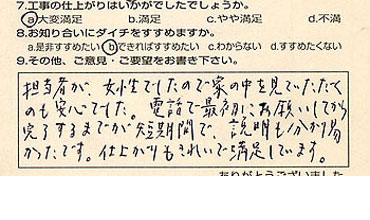 7.工事の仕上がりはいかがでしたでしょうか。
a大変満足 b.満足 c.やや満足 d.不満
8.お知り合いにダイチをすすめますか。
a.是非すすめたい bできればすすめたい c.わからない d.すすめたくない
9.その他、ご意見・ご要望をお書き下さい。
担当者が、女性でしたので家の中を見ていただく
のも安心でした。電話で最初にお願いしてから
完了するまでが短期間で、説明も分かり易
かったです。仕上がりもきれいで満足しています。
ありがとうございました